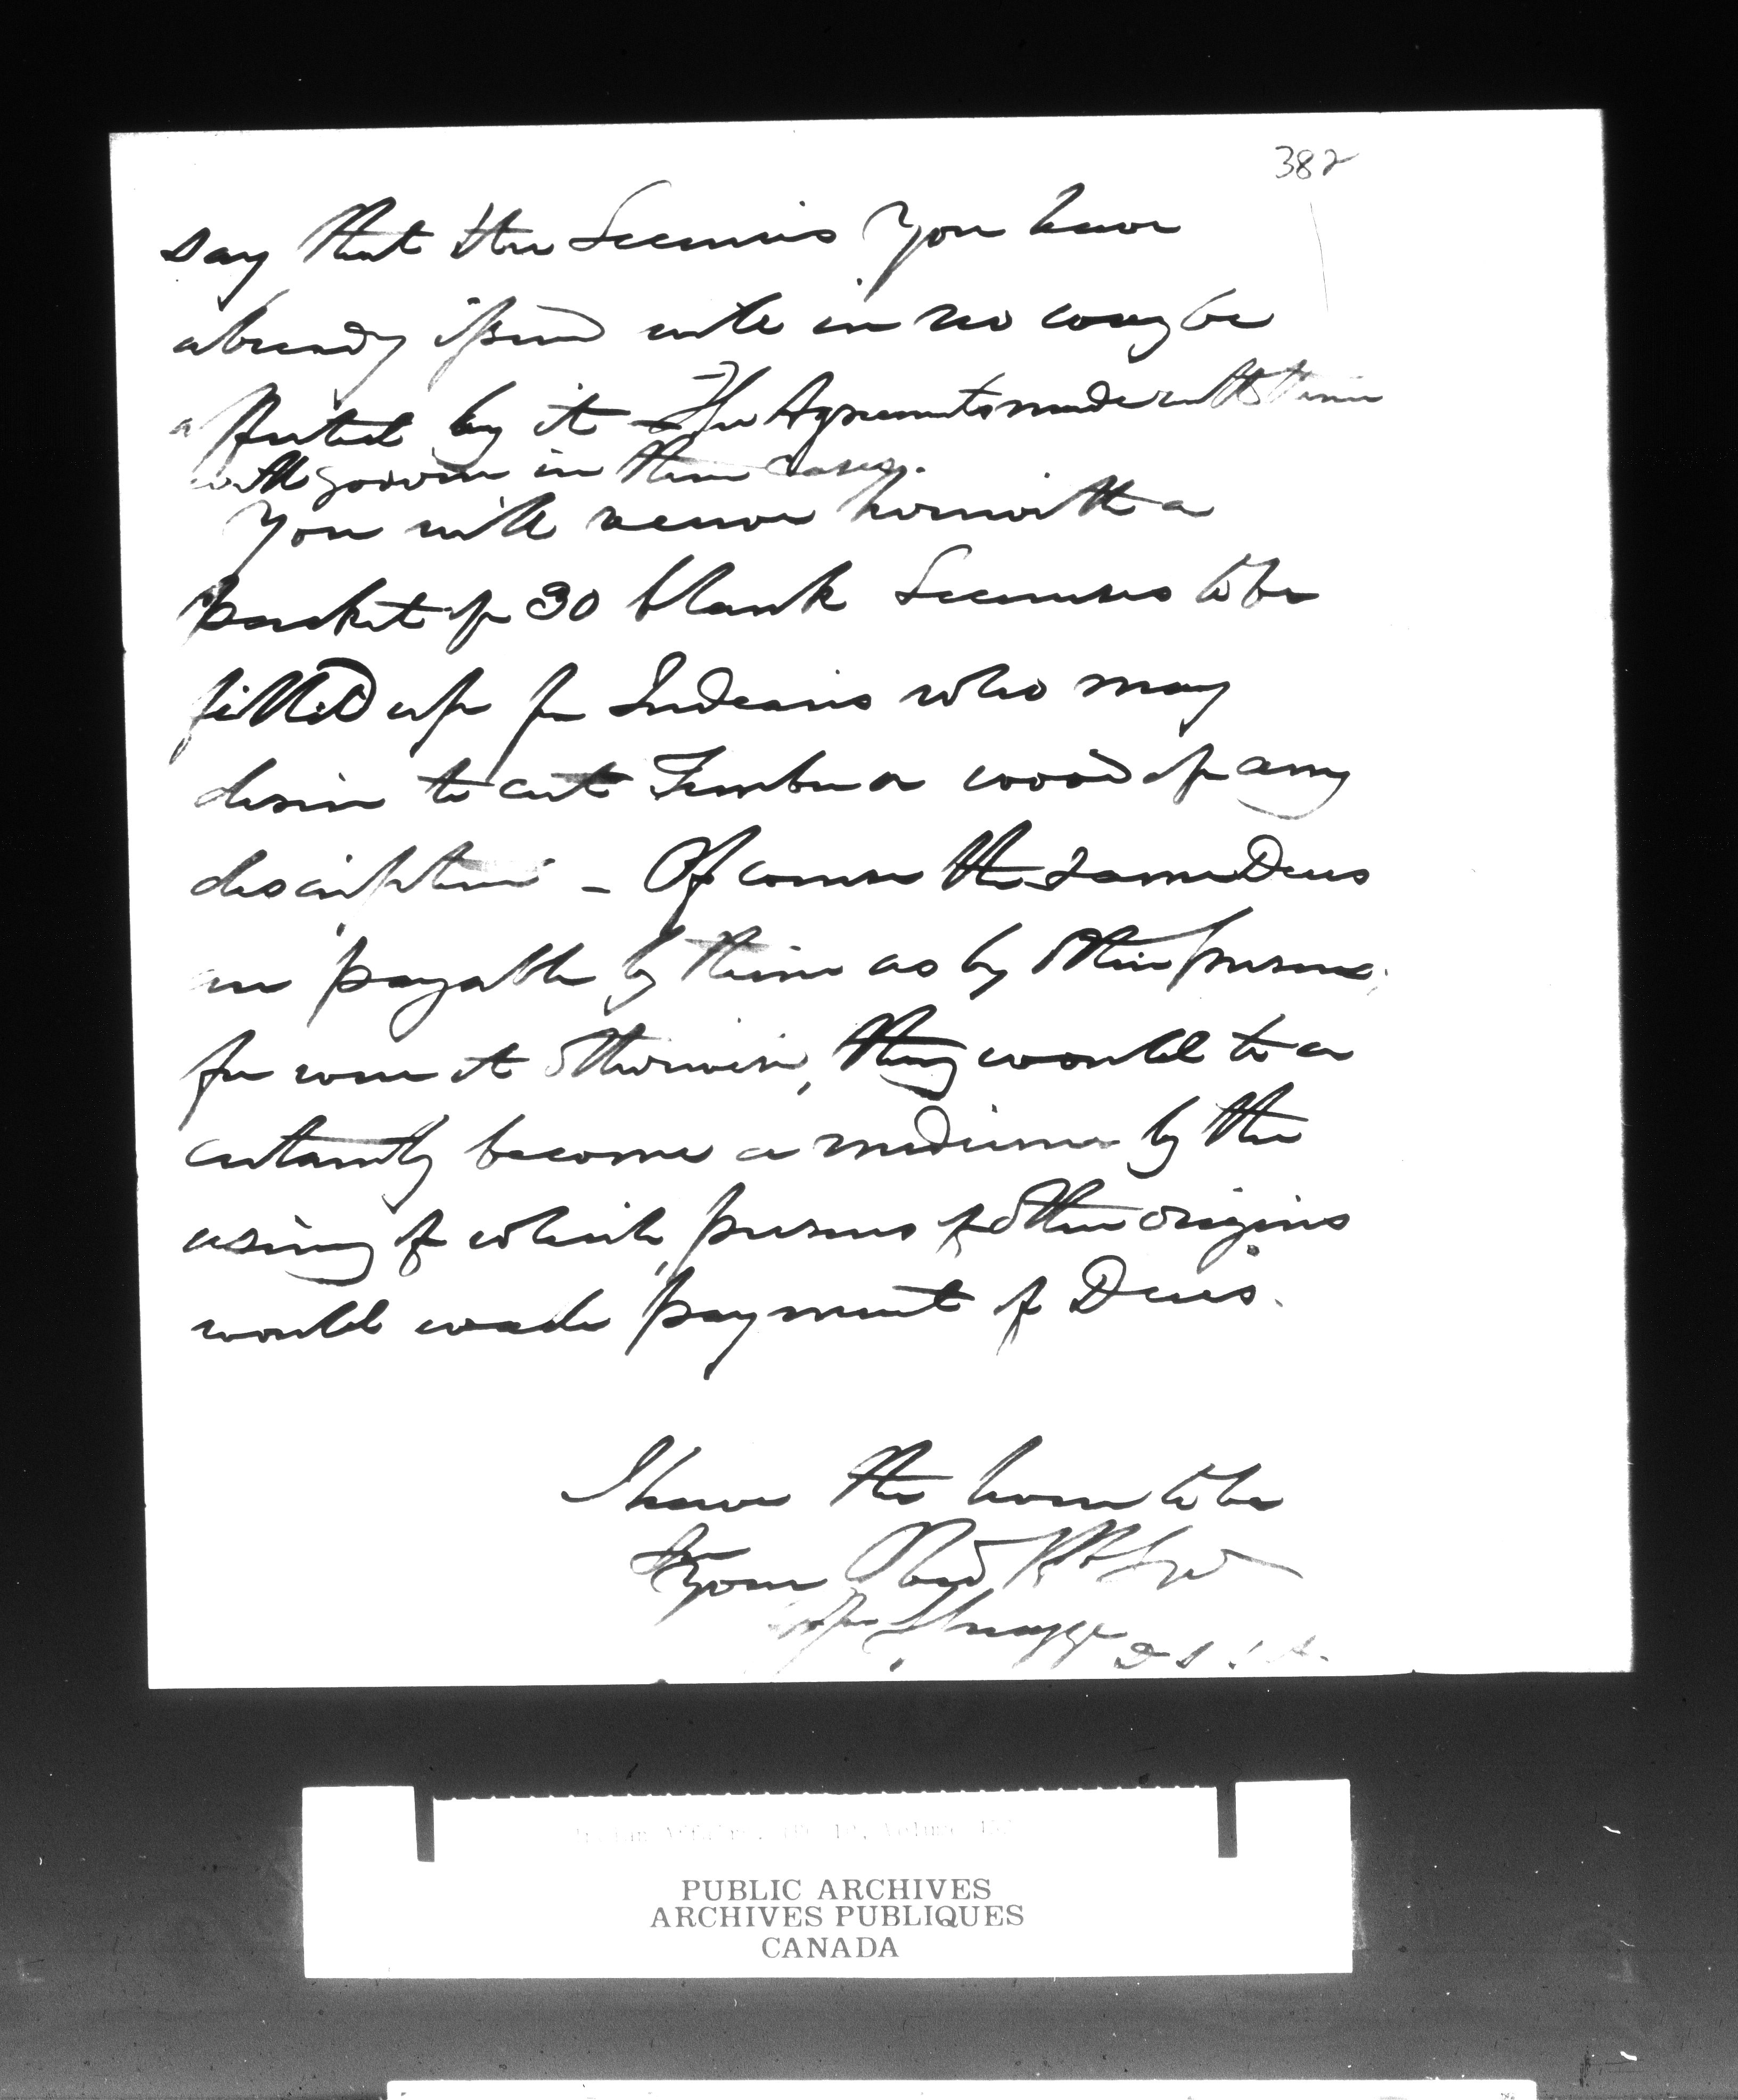 382
say that the Licenses you have
already issued will in no way be
affected by it – The Agreements made with them
will govern in them cases.
You will receive herewith a
packet of 30 blank Licenses to be
filled up for Indians who may
desire to cut Timber or wood of any
description – Of course the same Dues
are payable by them as by other persons;
for were it otherwise, they would to a
certainty become a medium by the
using of which persons of other origins
would evade payment of Dues.
I have the honor to be
Sir
Your Obed
D S
Indian Affairs, RG 10, Volume
PUBLIC ARCHIVES
ARCHIVES PUBLIQUES
CANADA